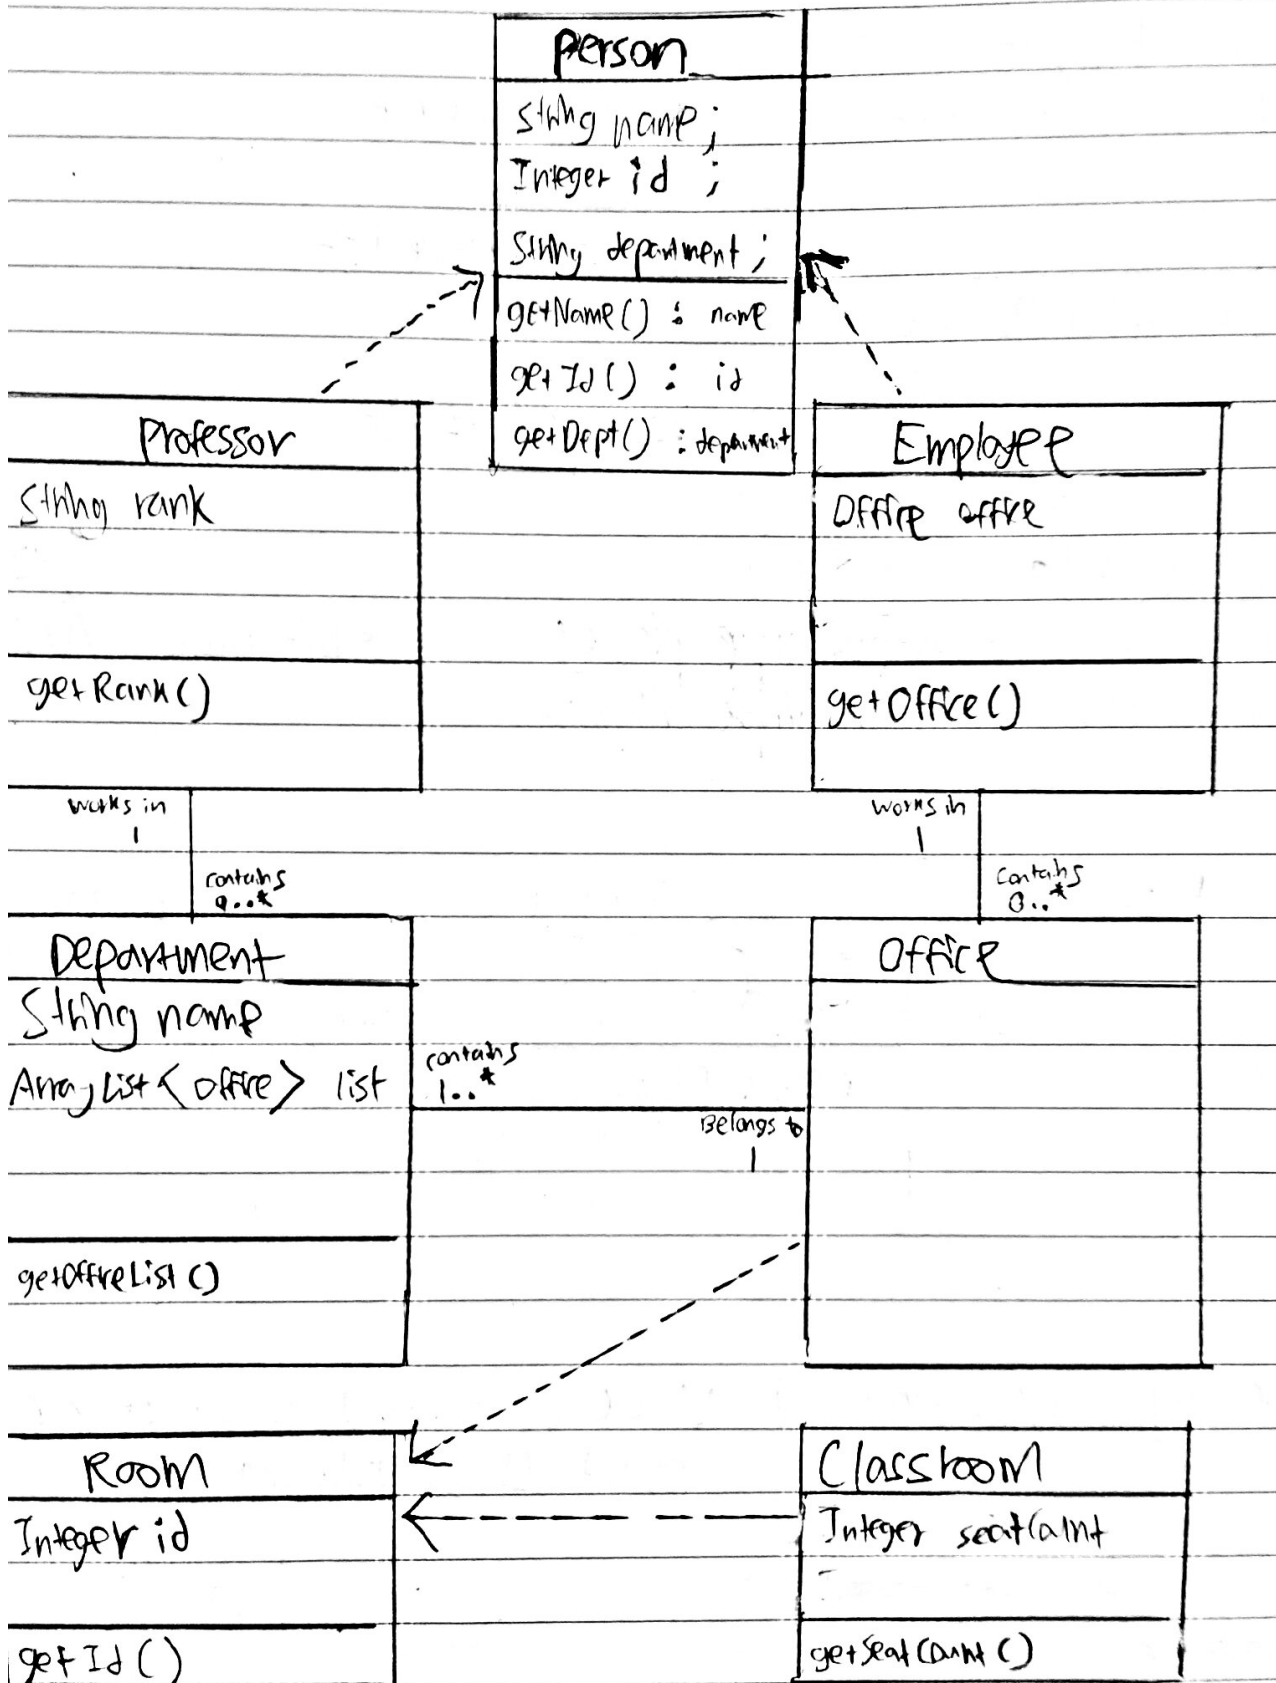 Person
String name ;
Integer id ;
String department ;
getName() : name
getId() : id
getDept() : department
Professor
String rank
getRank()
Employee
Office office
getOffice()
works in
1
contains
0..*
works in
1
contains
0..*
Department
String name
ArrayList<Office> list
getOfficeList()
contains
1..*
Belongs to
1
Office
Room
Integer id
getId()
Classroom
Integer seatCount
getSeatCount()